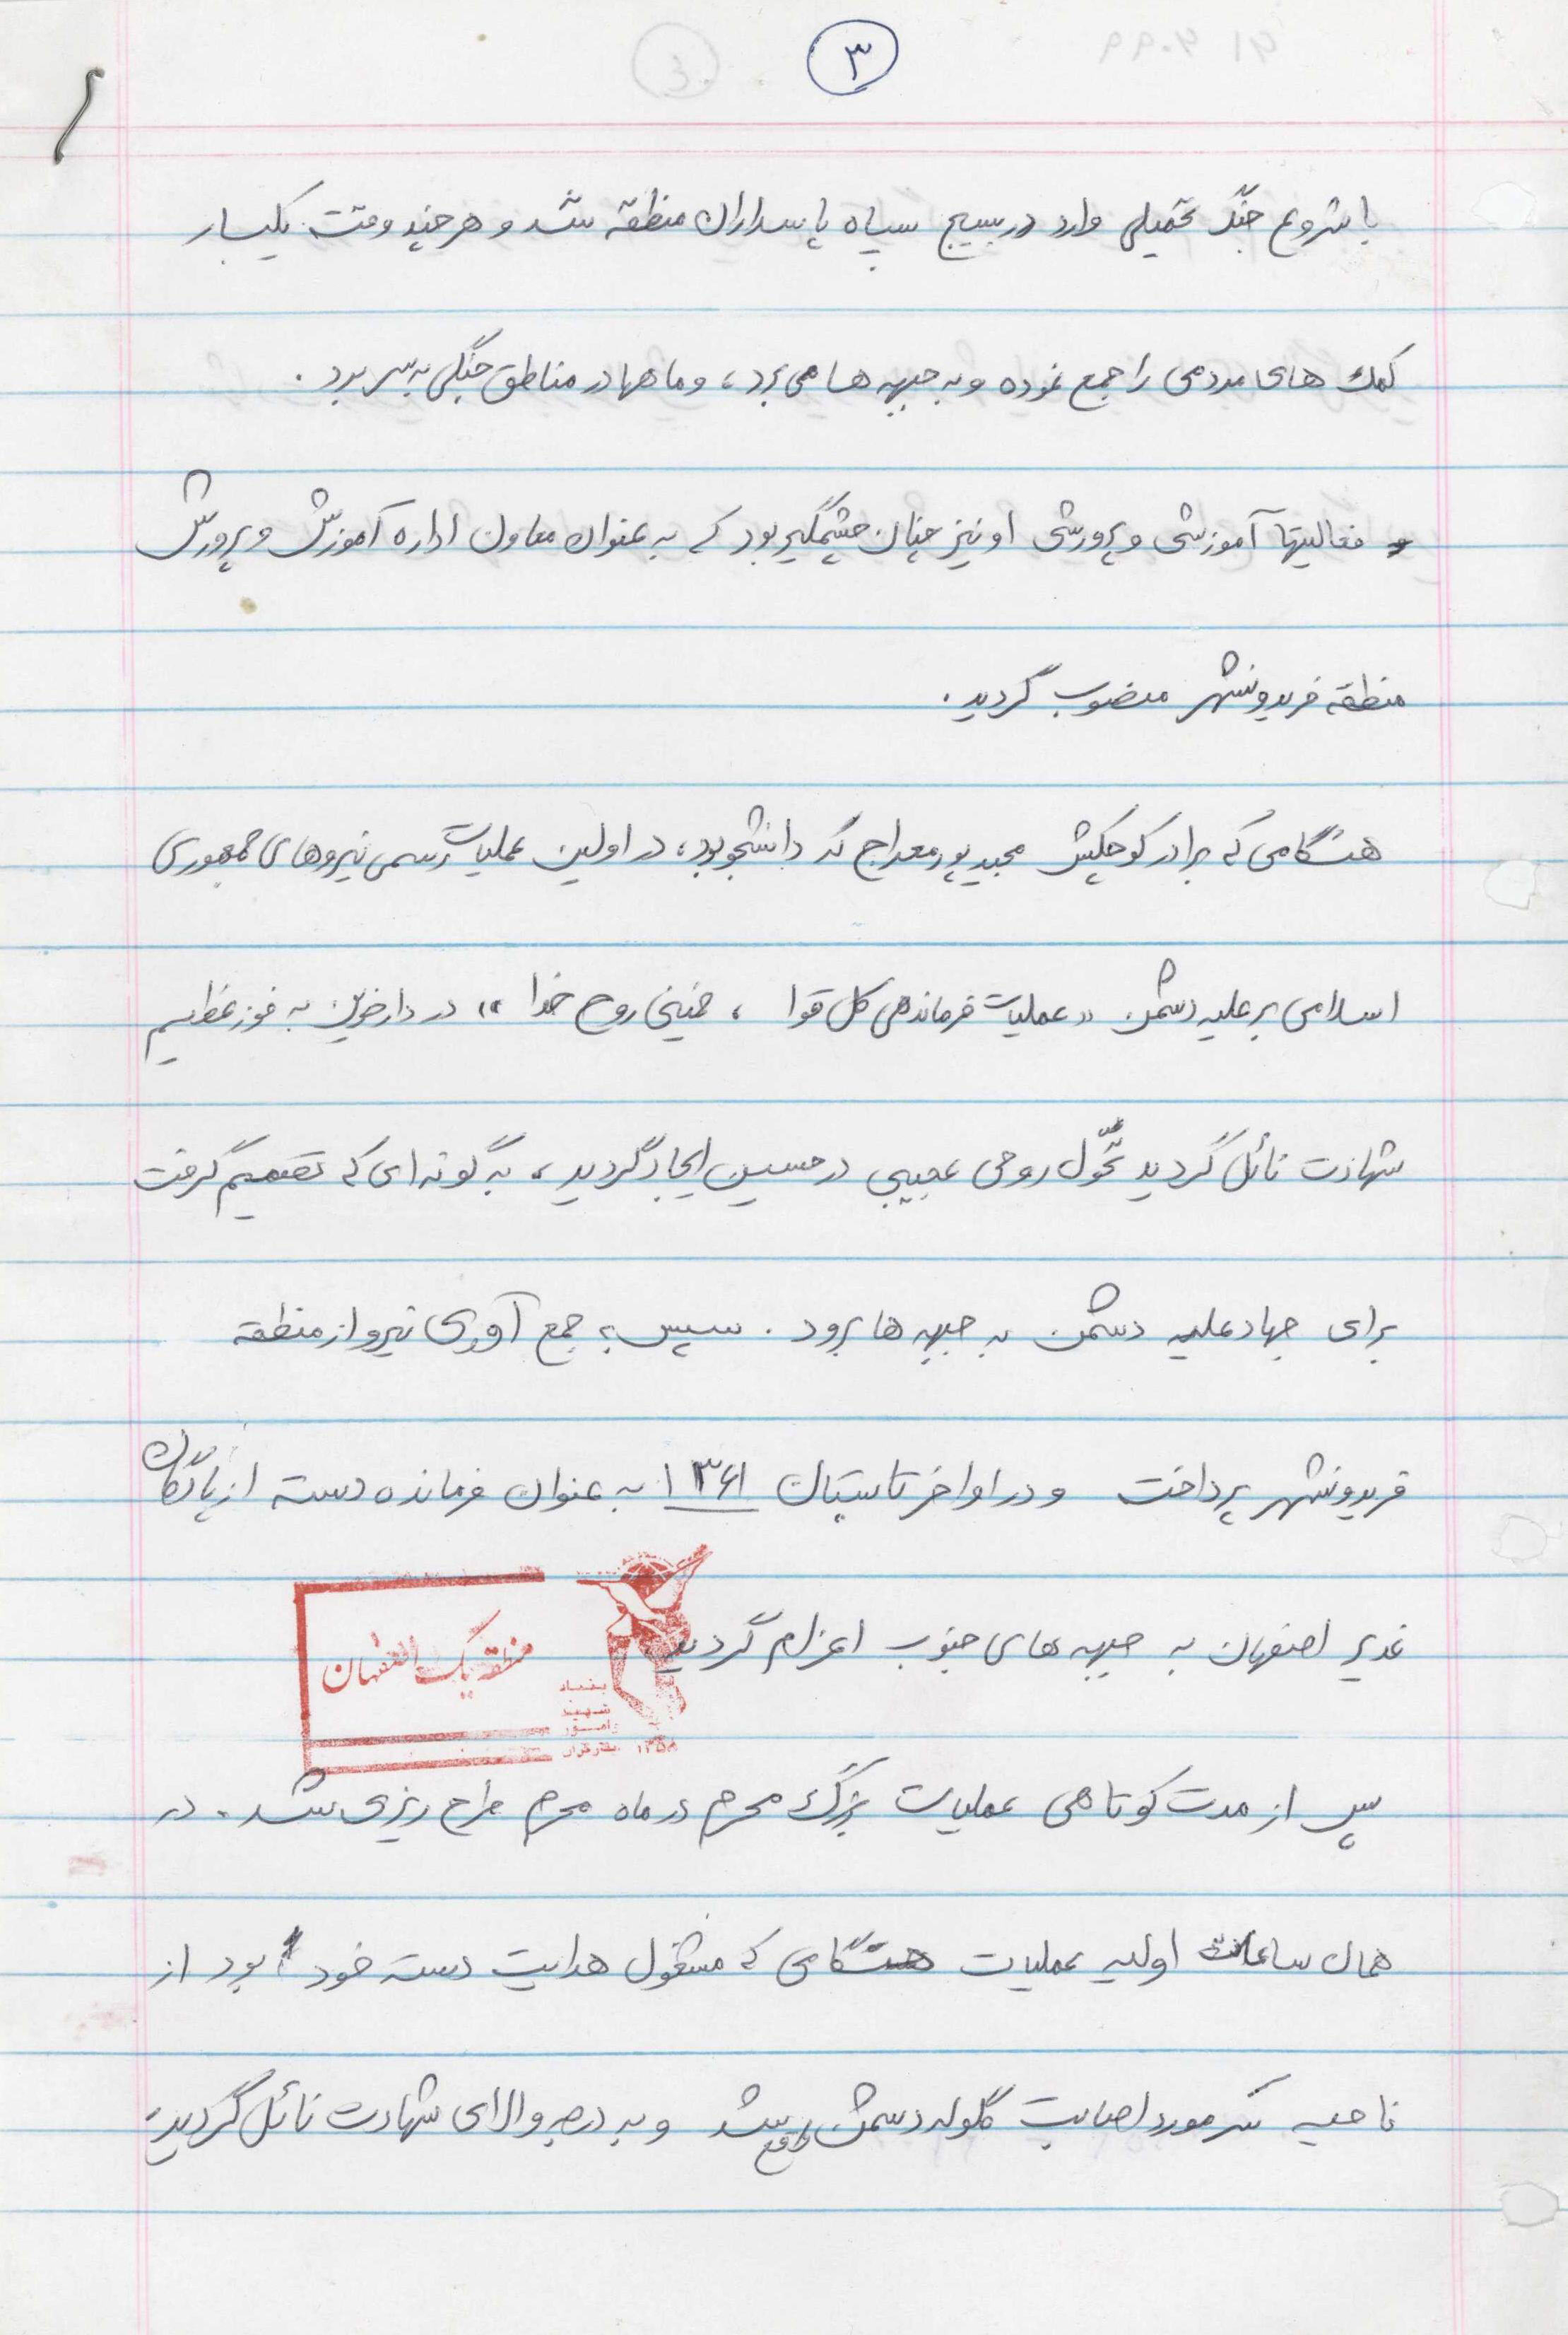 ۳
با شروع جنگ تحمیلی وارد در بسیج سپاه پاسداران منطقه شد و هر چند وقت یکبار
کمک های مردمی را جمع نموده و به جبهه ها می برد، و ماهها در مناطق جنگی به سر برد.
و فعالیتها آموزشی و پرورشی او نیز چنان چشمگیر بود که به عنوان معاون اداره آموزش و پرورش
منطقه فریدونشهر منصوب گردید.
هنگامی که برادر کوچکش مجید پورمعراج که دانشجو بود، در اولین عملیات رسمی نیروهای جمهوری
اسلامی بر علیه دشمن «عملیات فرماندهی کل قوا ، خمینی روح خدا» در دارخوین به فوز عظیم
شهادت نائل گردید تحّول روحی عجیبی در حسین ایجاد گردید، به گونه ای که تصمیم گرفت
برای جهاد علیه دشمن به جبهه ها برود. سپس به جمع آوری نیرو از منطقه
فریدونشهر پرداخت و در اواخر تابستان ۱۳۶۱ به عنوان فرمانده دسته از پادگان
غدیر اصفهان به جبهه های جنوب اعزام گردید
منطقه یک اصفهان
بنیاد
شهید
وامور
ایثارگران ۱۳۵۸
پس از مدت کوتاهی عملیات بزرگ محرم در ماه محرم طرح ریزی شد. در
همان ساعات اولیه عملیات هنگامی که مشغول هدایت دسته خود بود از
ناحیه سر مورد اصابت گلوله دشمن واقع شد و به درجه والای شهادت نائل گردید،